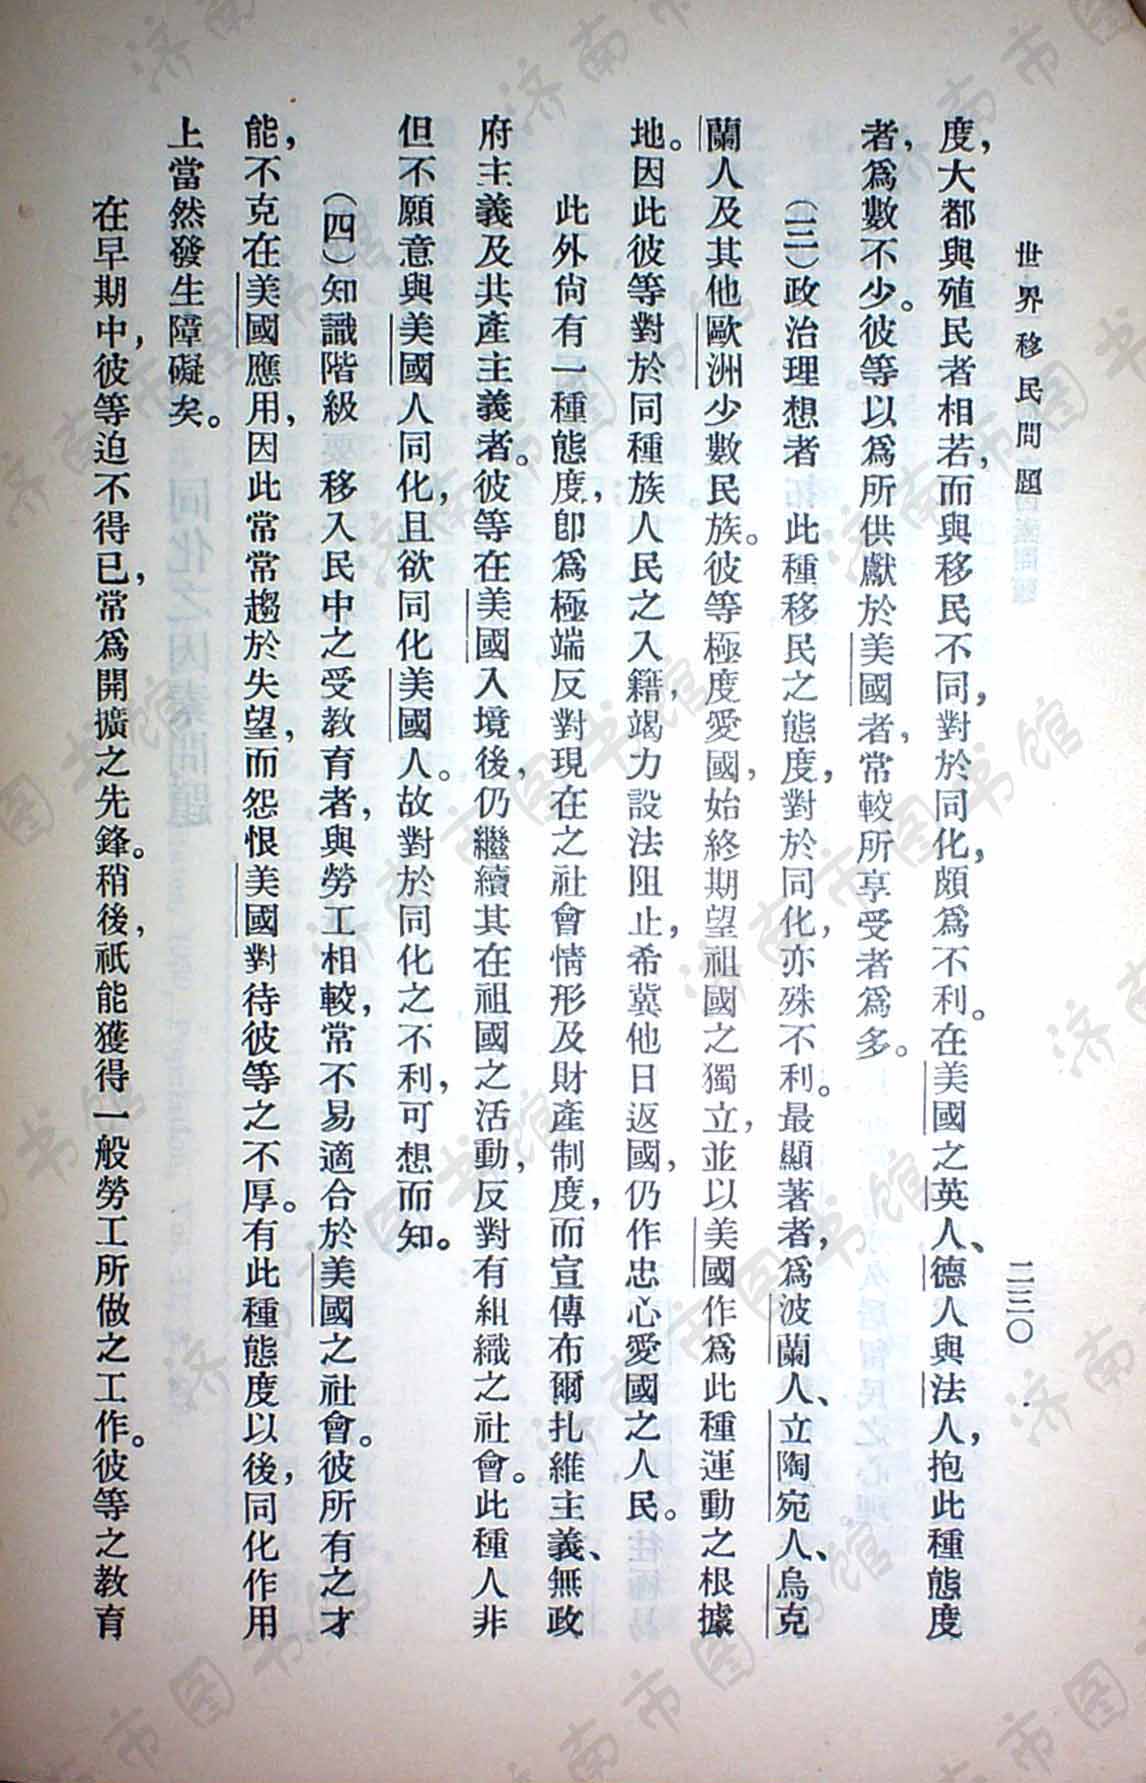 世界移民問題
二三〇
度，大都與殖民者相若，而與移民不同，對於同化，頗爲不利。在美國之英人、德人與法人，抱此種態度
者，爲數不少。彼等以爲所供獻於美國者，常較所享受者爲多。
（三）政治理想者　此種移民之態度，對於同化，亦殊不利。最顯著者，爲波蘭人、立陶宛人、烏克
蘭人及其他歐洲少數民族。彼等極度愛國，始終期望祖國之獨立，並以美國作爲此種運動之根據
地。因此彼等對於同種族人民之入籍，竭力設法阻止，希冀他日返國，仍作忠心愛國之人民。
此外尙有一種態度，卽爲極端反對現在之社會情形及財產制度，而宣傳布爾扎維主義、無政
府主義及共產主義者。彼等在美國入境後，仍繼續其在祖國之活動，反對有組織之社會。此種人非
但不願意與美國人同化，且欲同化美國人。故對於同化之不利，可想而知。
（四）知識階級　移入民中之受教育者，與勞工相較，常不易適合於美國之社會。彼所有之才
能，不克在美國應用，因此常常趨於失望，而怨恨美國對待彼等之不厚。有此種態度以後，同化作用
上當然發生障礙矣。
在早期中，彼等迫不得已，常爲開擴之先鋒。稍後，祇能獲得一般勞工所做之工作。彼等之教育
济南市图书馆